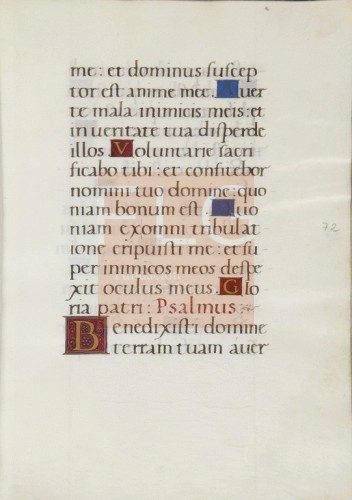 me: et dominus suscep
tor est anime mee. Auer
te mala inimicis meis: et
in ueritate tua disperde
illos. Voluntarie sacri
ficabo tibi: et confitebor
nomini tuo domine: quo
niam bonum est. Quo
niam ex omni tribulat
ione eripuisti me: et su
per inimicos meos despe
xit oculus meus. Glo
ria patri: Psalmus
Benedixisti domine
terram tuam auer
72